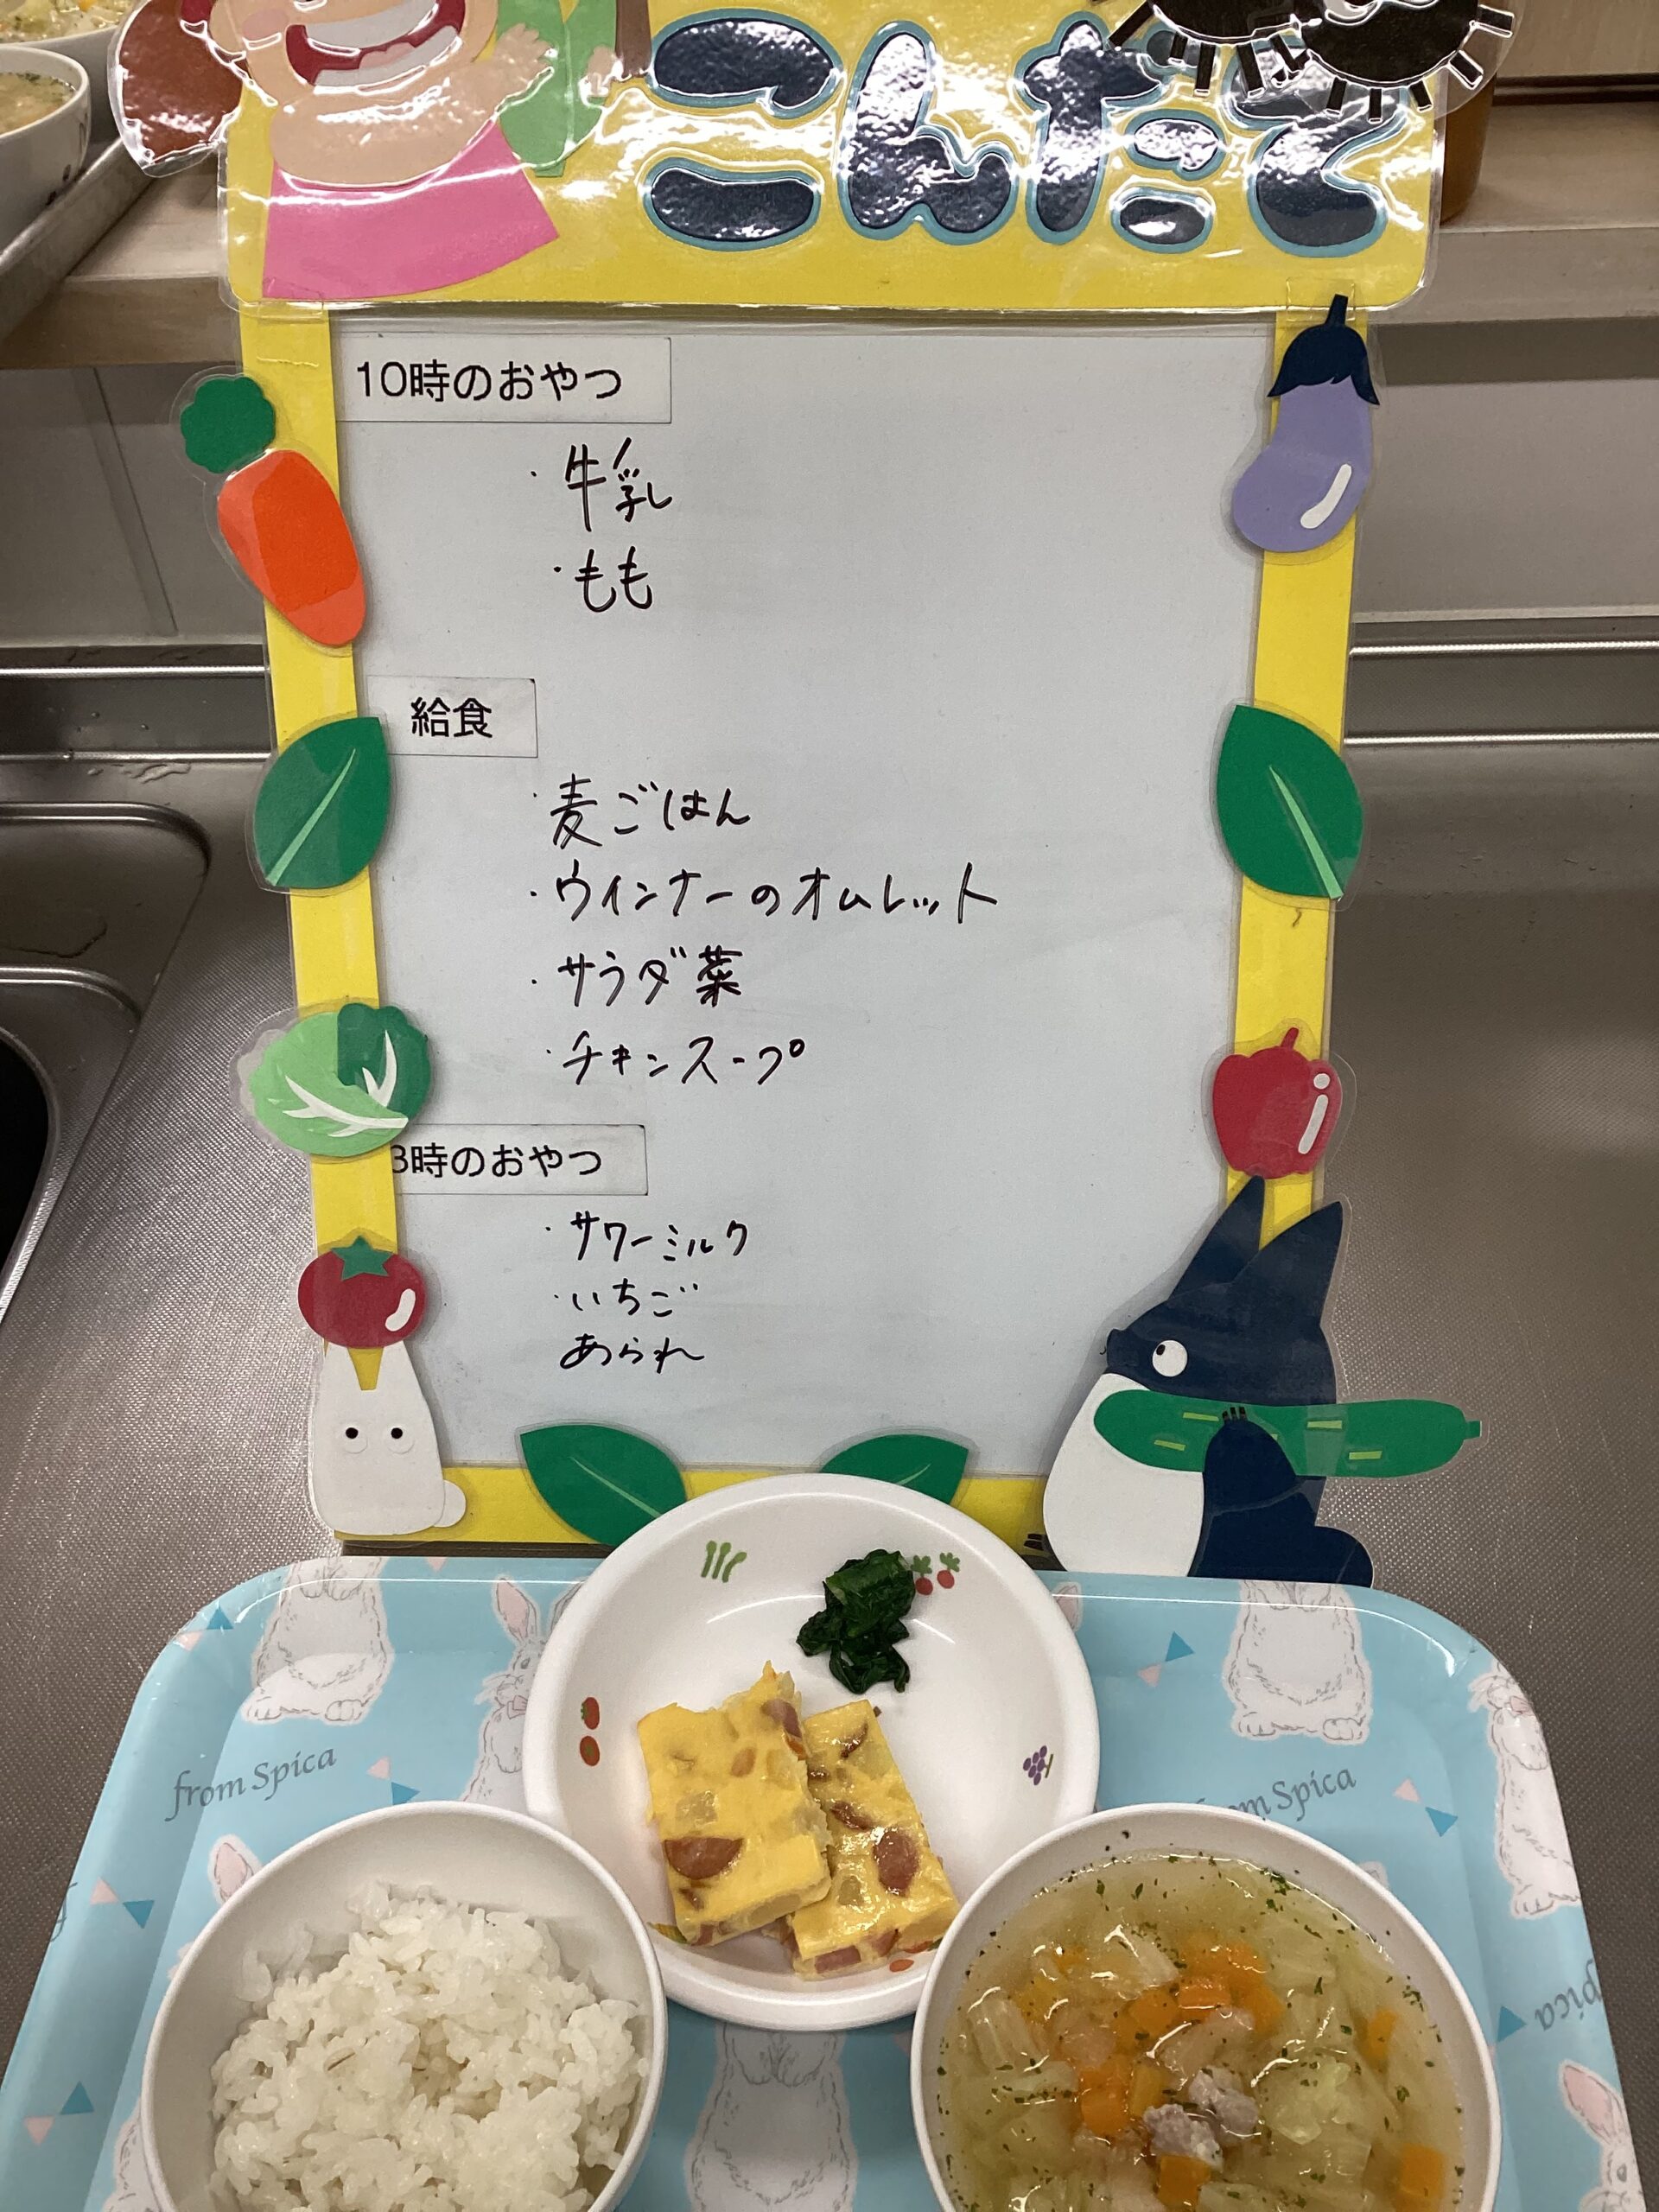 こんだて
10時のおやつ
・牛乳
・もも
給食
・麦ごはん
・ウインナーのオムレット
・サラダ菜
・チキンスープ
3時のおやつ
・サワーミルク
・いちご
あられ
from Spica
from Spica